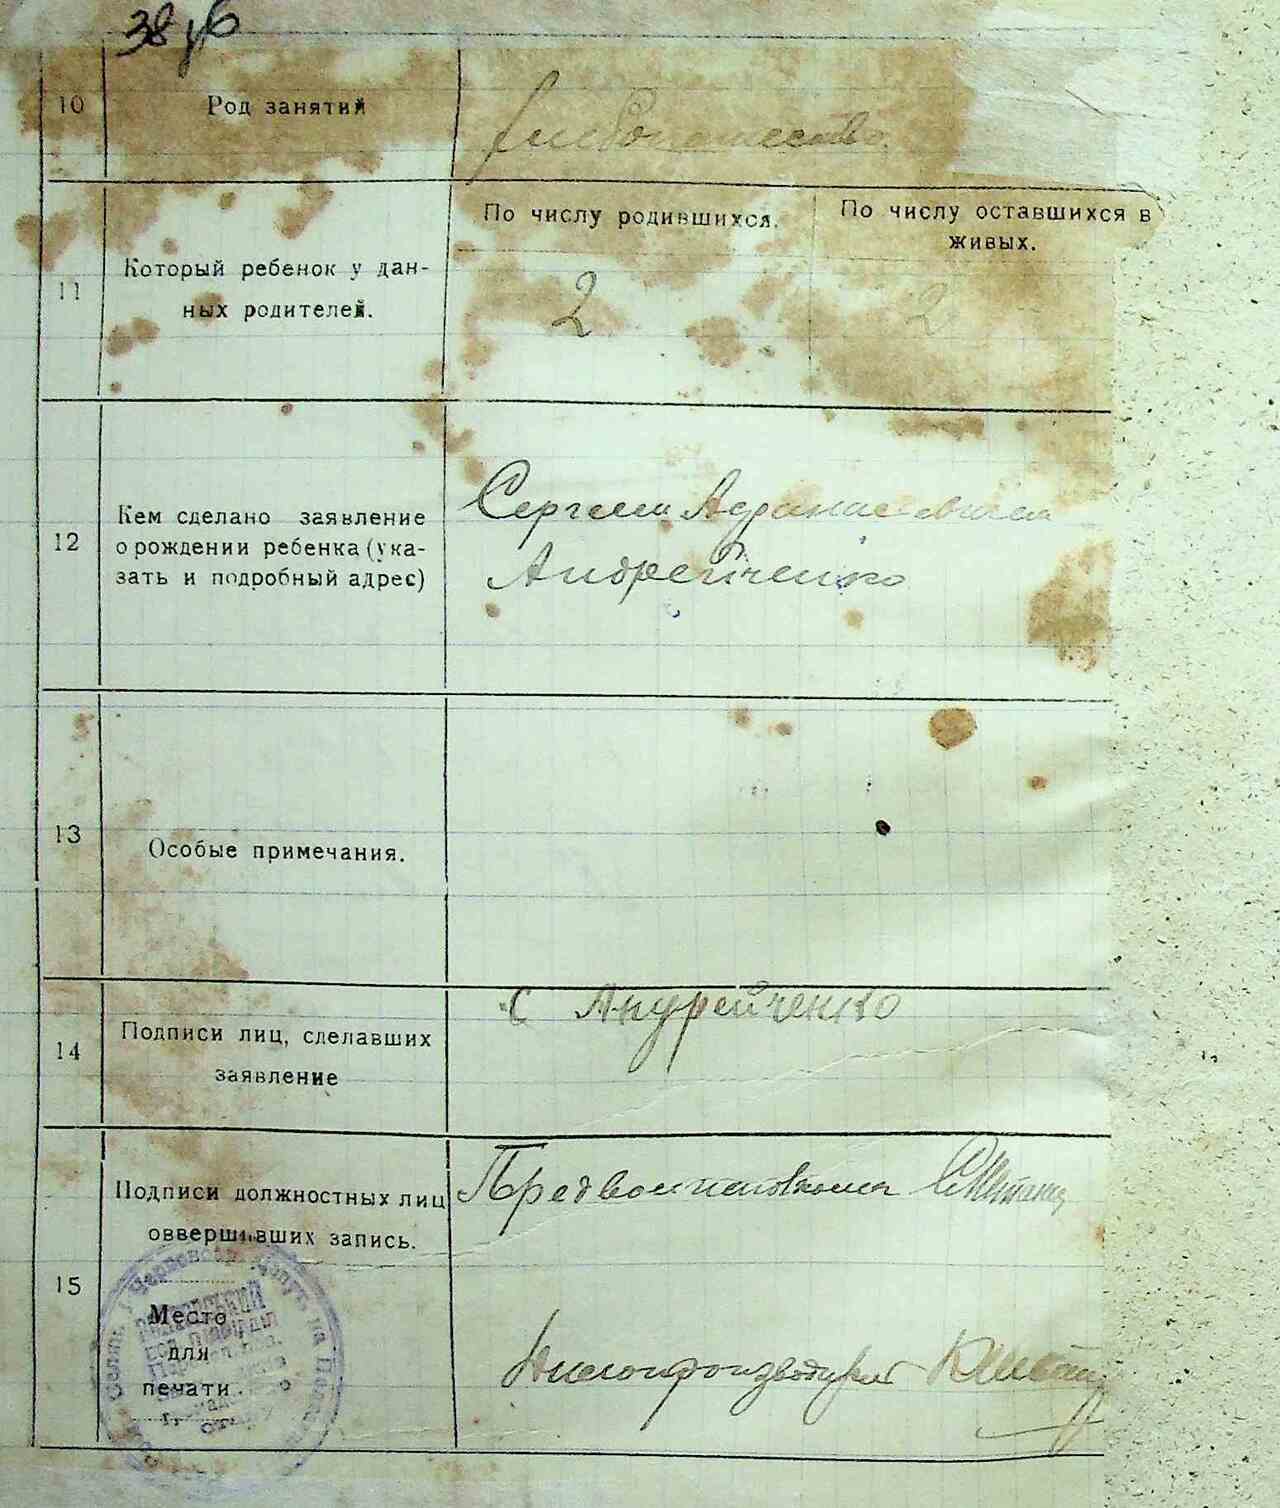 38 зв
10
Род занятий
хлебопашество.
11
Который ребенок у дан-
ных родителей.
По числу родившихся.
По числу оставшихся в
живых.
2
2
12
Кем сделано заявление
о рождении ребенка (ука-
зать и подробный адрес)
Сергеем Афанасиевичем
Андрейченко
13
Особые примечания.
14
Подписи лиц, сделавших
заявление
С Андрейченко
15
Подписи должностных лиц
овершивших запись.
Место
для
печати.
Делопроизводитель